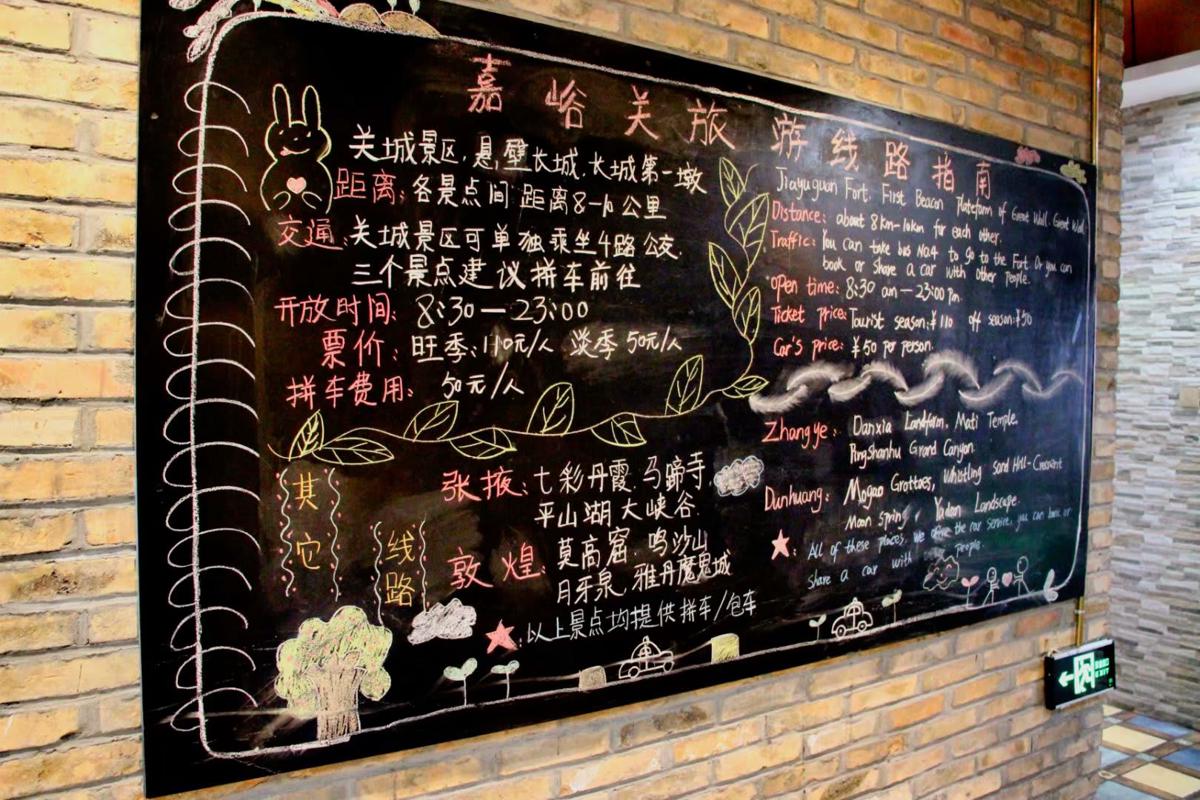 嘉峪关旅游线路指南
关城景区.悬壁长城.长城第一墩
距离:各景点间距离8-10公里
交通:关城景区可单独乘坐4路公交.
三个景点建议拼车前往
开放时间:8:30—23:00
票价:旺季:110元/人 淡季50元/人
拼车费用: 50元/人
Jiayuguan Fort. First Beacon Plateform of Great Wall. Great Wall.
Distance: about 8km-10km for each other.
Traffic: You can take bus No.4 to go to the Fort. Or you can
book or share a car with other people.
Open time: 8:30 am—23:00 pm.
Ticket price: Tourist season:¥110 off season:¥50
Car's price: ¥50 per person.
其它
线路
张掖:七彩丹霞.马蹄寺.
平山湖大峡谷.
敦煌:莫高窟.鸣沙山
月牙泉.雅丹魔鬼城
:以上景点均提供拼车/包车
Zhangye: Danxia Landform. Mati Temple.
Pingshanhu Grand Canyon.
Dunhuang: Mogao Grottoes, Whistling Sand Hill-Crescent
Moon Spring, Yadan Landscape.
: All of these places, we the car service, you can book or
share a car with people.
EXIT